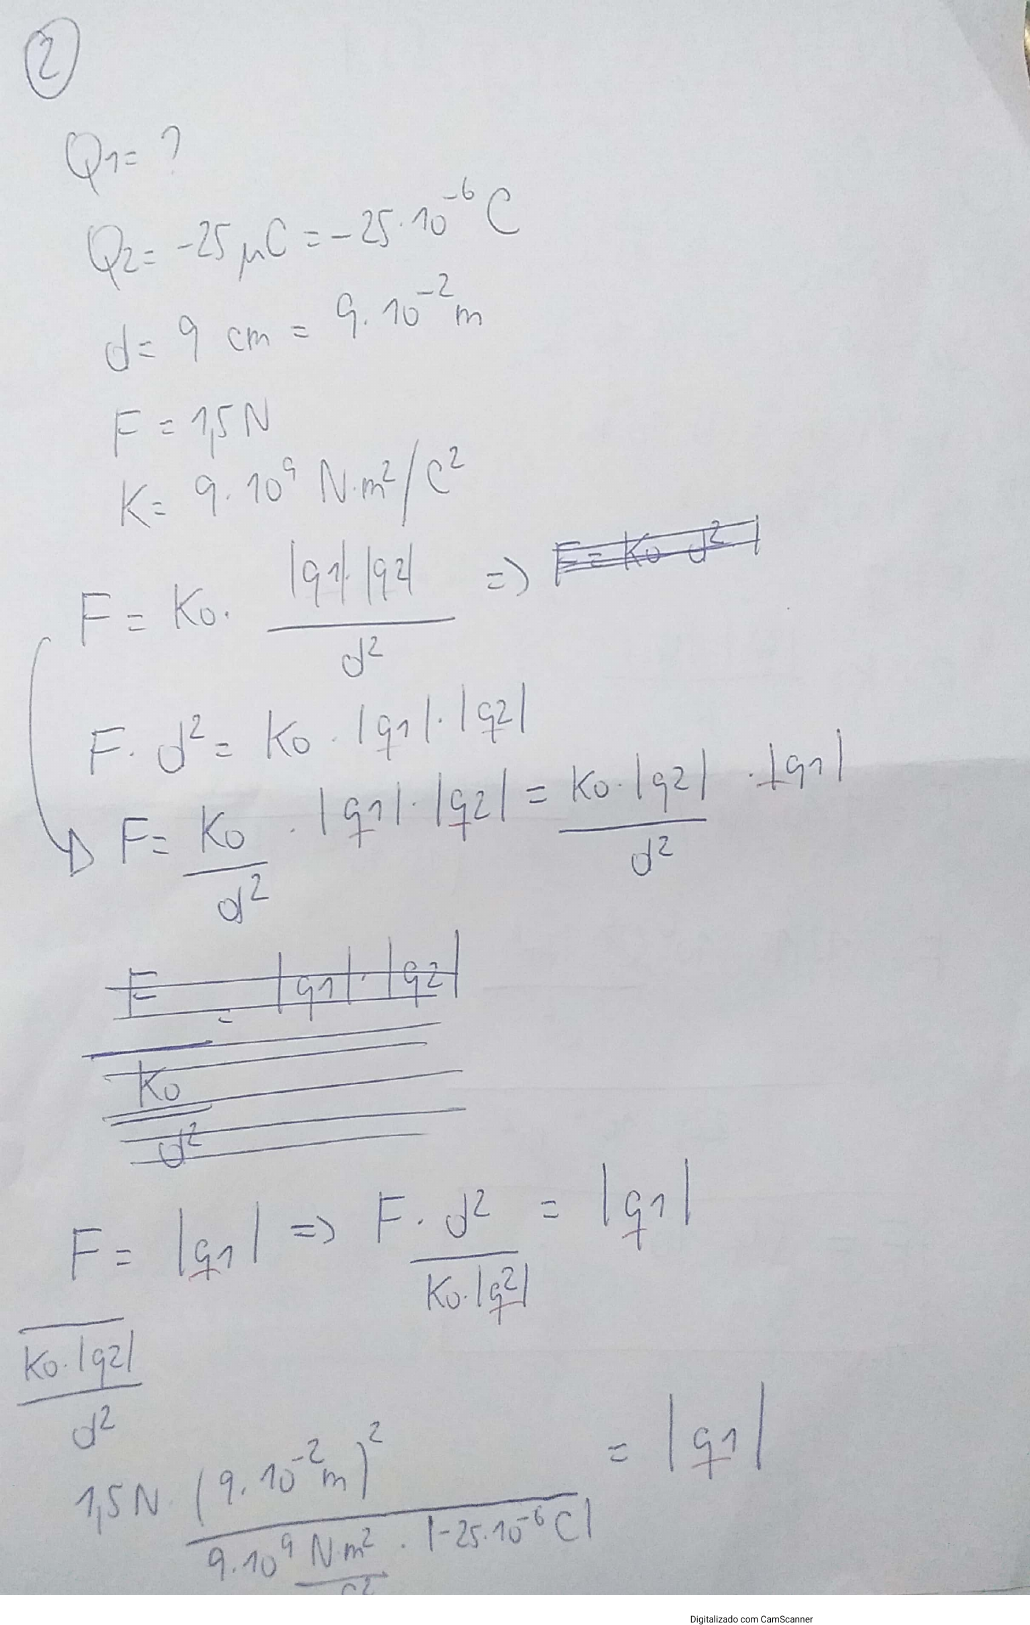 2
Q1 = ?
Q2 = -25 μC = -25·10^-6 C
d = 9 cm = 9·10^-2 m
F = 1,5 N
K = 9·10^9 N·m²/C²
F = K0 · |q1|·|q2| / d² => F = K0 d²
F · d² = K0 · |q1| · |q2|
F = K0 / d² · |q1| · |q2| = K0·|q2| / d² · |q1|
F / (K0 / d²) = |q1| · |q2|
F / (K0·|q2| / d²) = |q1| => F · d² / K0·|q2| = |q1|
1,5 N · (9·10^-2 m)² / 9·10^9 N·m²/C² · |-25·10^-6 C| = |q1|
Digitalizado com CamScanner